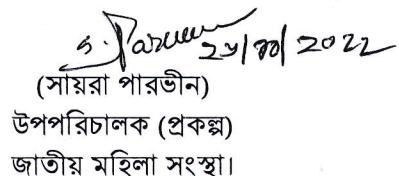 S. Parveen
(সায়রা পারভীন)
উপপরিচালক (প্রকল্প)
জাতীয় মহিলা সংস্থা।